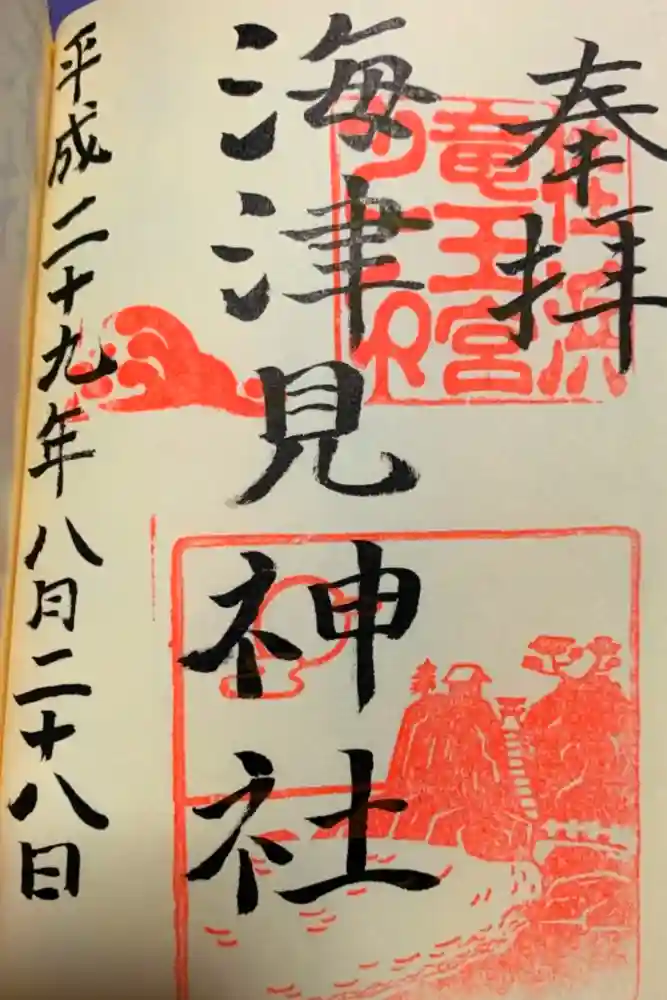 奉拝
海津見神社
平成二十九年八月二十八日
竜王宮